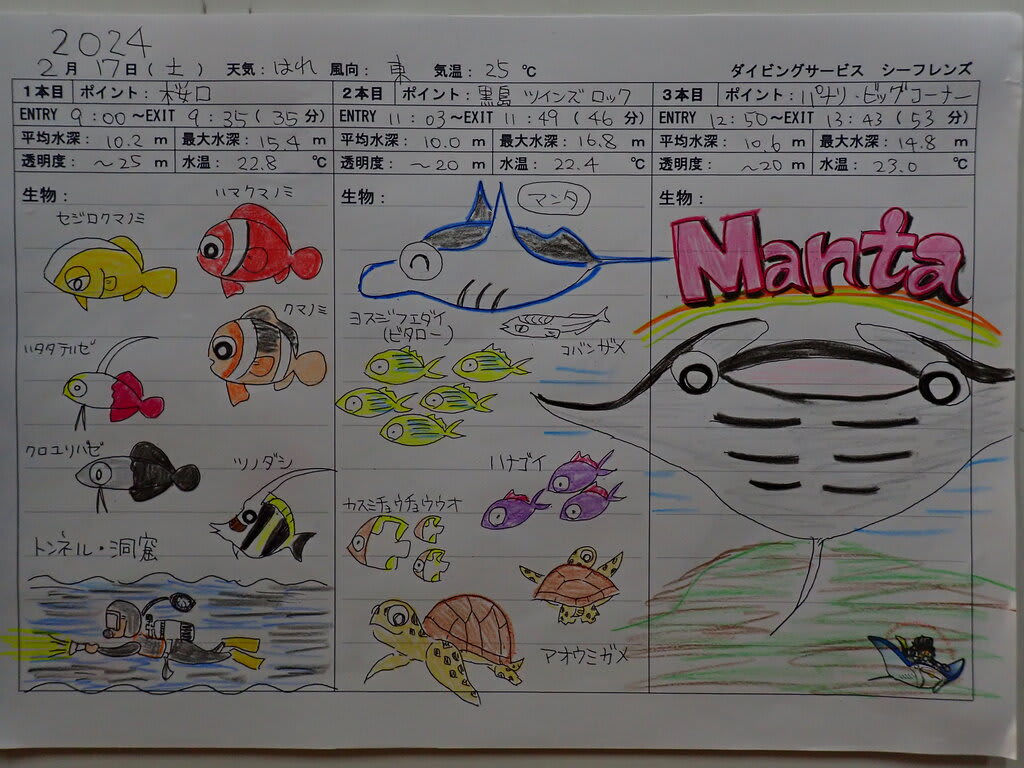 2024
2月17日(土) 天気:はれ 風向:東 気温:25℃ ダイビングサービス シーフレンズ
1本目 ポイント:桜口
ENTRY 9:00~EXIT 9:35(35分)
平均水深:10.2m 最大水深:15.4m
透明度:~25m 水温:22.8℃
生物:
ハマクマノミ
セジロクマノミ
クマノミ
ハタタテハゼ
クロユリハゼ
ツノダシ
トンネル・洞窟
2本目 ポイント:黒島 ツインズロック
ENTRY 11:03~EXIT 11:49(46分)
平均水深:10.0m 最大水深:16.8m
透明度:~20m 水温:22.4℃
生物:
マンタ
ヨスジフエダイ
(ビタロー)
コバンザメ
ハナゴイ
カスミチョウチョウウオ
アオウミガメ
3本目 ポイント:パナリ・ビッグコーナー
ENTRY 12:50~EXIT 13:43(53分)
平均水深:10.6m 最大水深:14.8m
透明度:~20m 水温:23.0℃
生物:
Manta